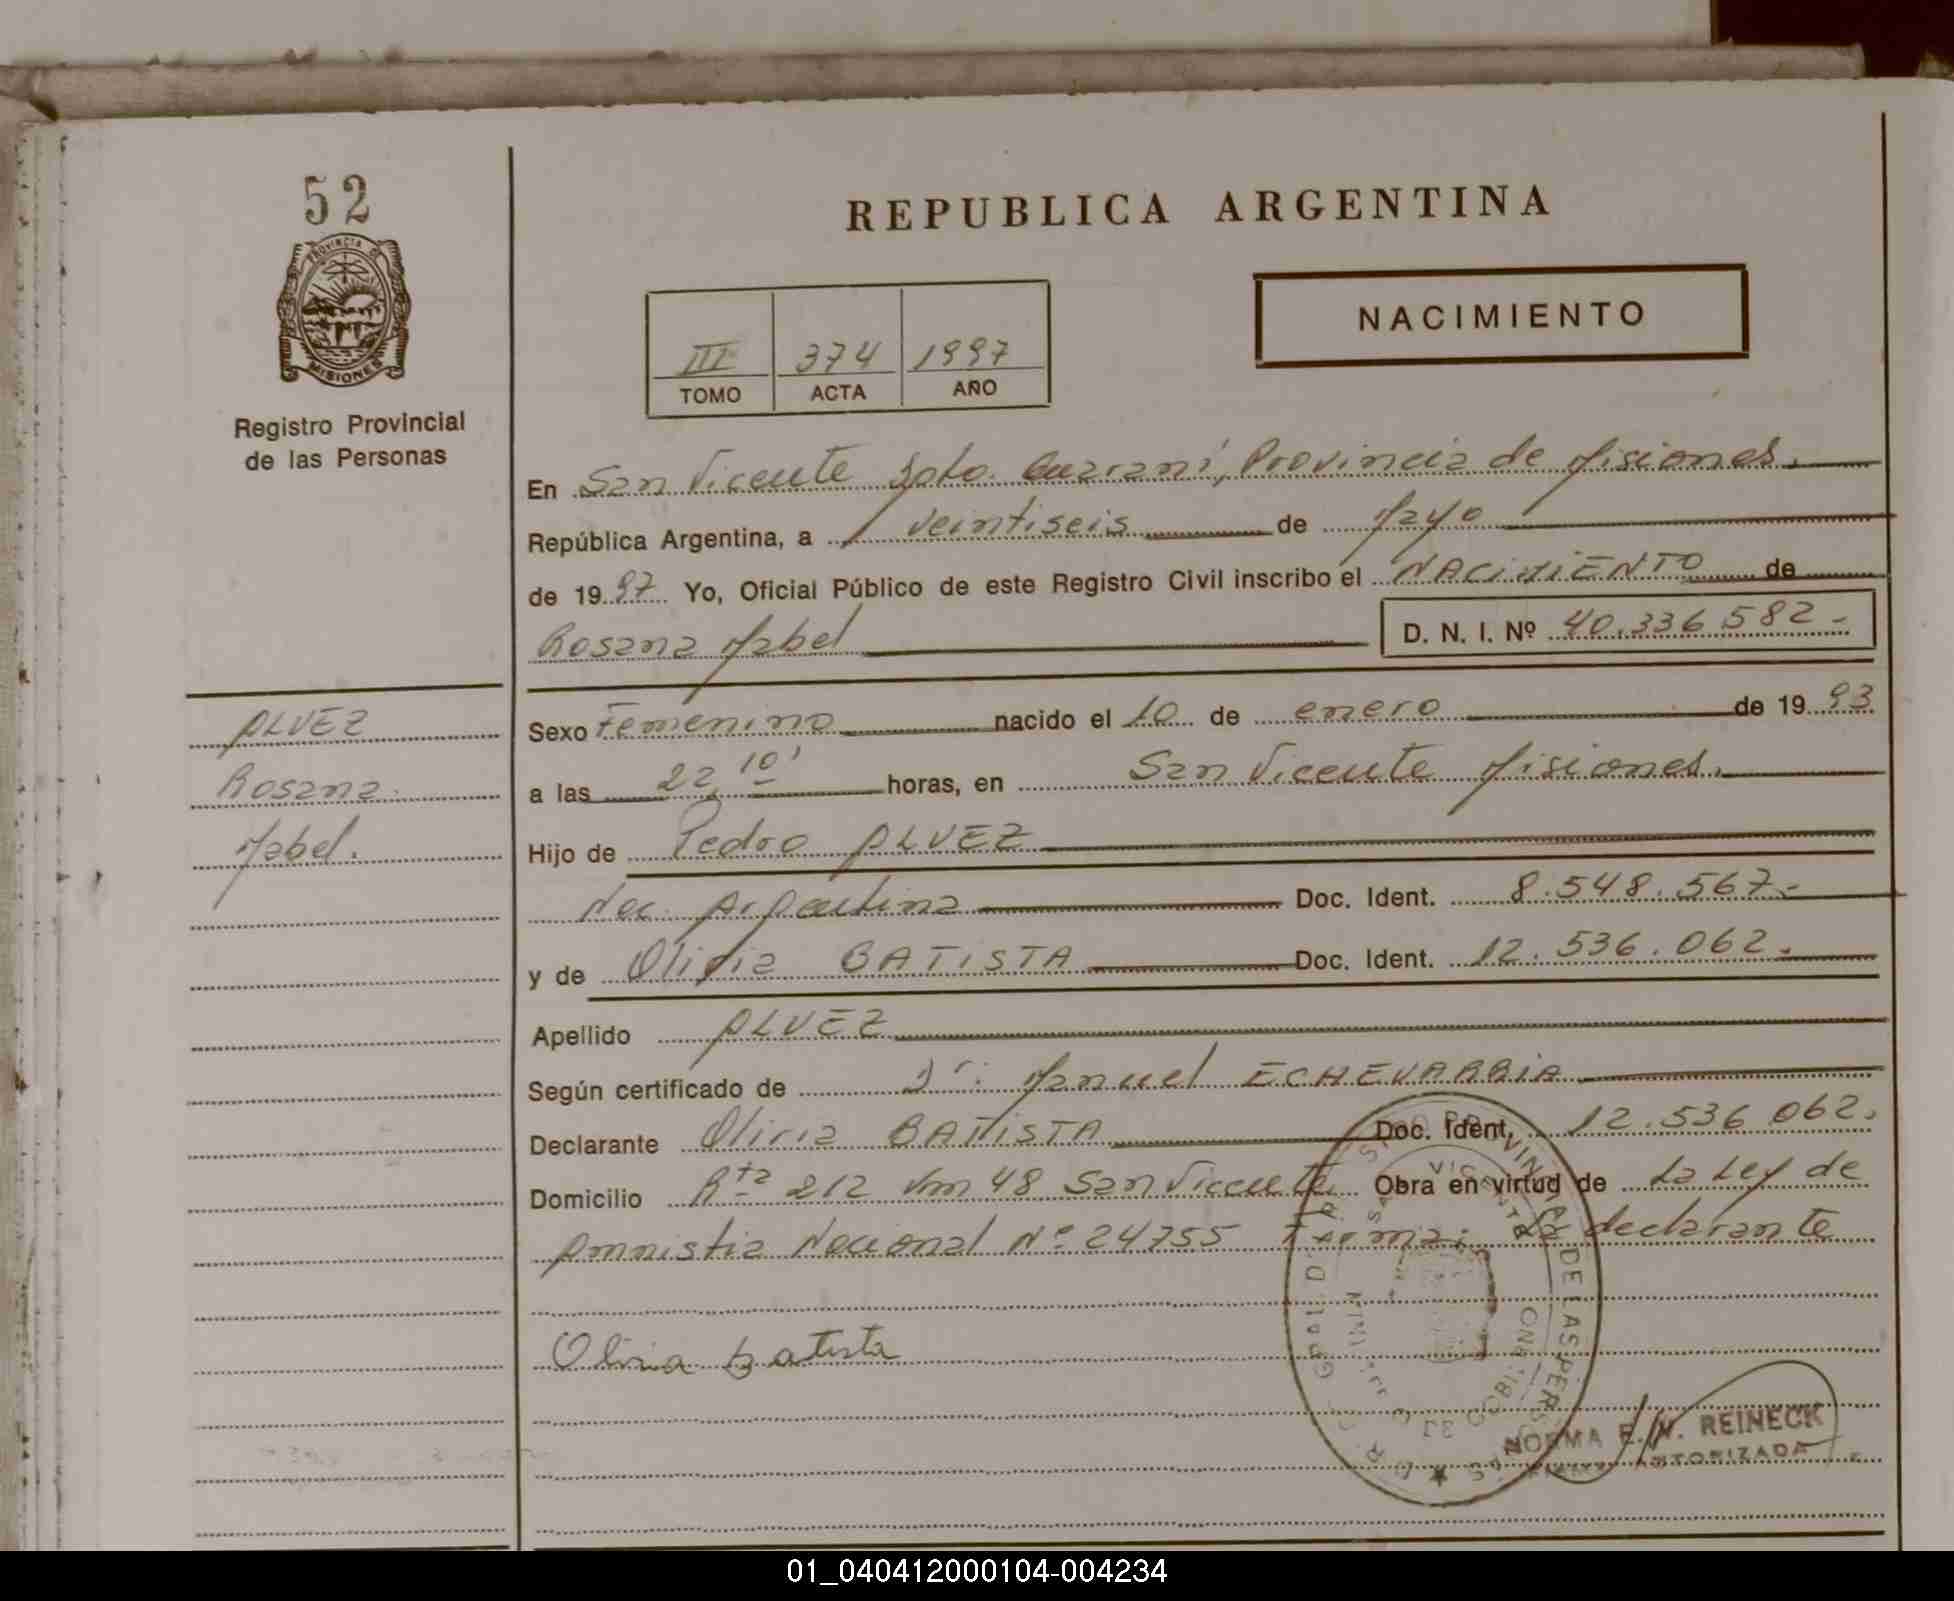 52
PROVINCIA DE
MISIONES
Registro Provincial
de las Personas
REPUBLICA ARGENTINA
III 374 1997
TOMO ACTA AÑO
NACIMIENTO
En San Vicente Dpto. Guaraní, Provincia de Misiones.
República Argentina, a veintiseis de Mayo
de 1997 Yo, Oficial Público de este Registro Civil inscribo el NACIMIENTO de
Rosana Mabel D. N. I. Nº 40.336.582-
ALVEZ
Rosana
Mabel.
Sexo Femenino nacido el 10 de enero de 1993
a las 22,10' horas, en San Vicente Misiones.
Hijo de Pedro ALVEZ
Nac. Argentina Doc. Ident. 8.548.567.-
y de Oliria BATISTA Doc. Ident. 12.536.062.-
Apellido ALVEZ
Según certificado de Dr. Manuel ECHEVARRIA
Declarante Oliria BATISTA Doc. Ident. 12.536.062.
Domicilio Rta 212 Km 48 San Vicente Obra en virtud de La Ley de
Amnistia Nacional Nº 24755 Firma: La declarante
Oliria Batista
NORMA E. N. REINECK
AUTORIZADA
01_040412000104-004234